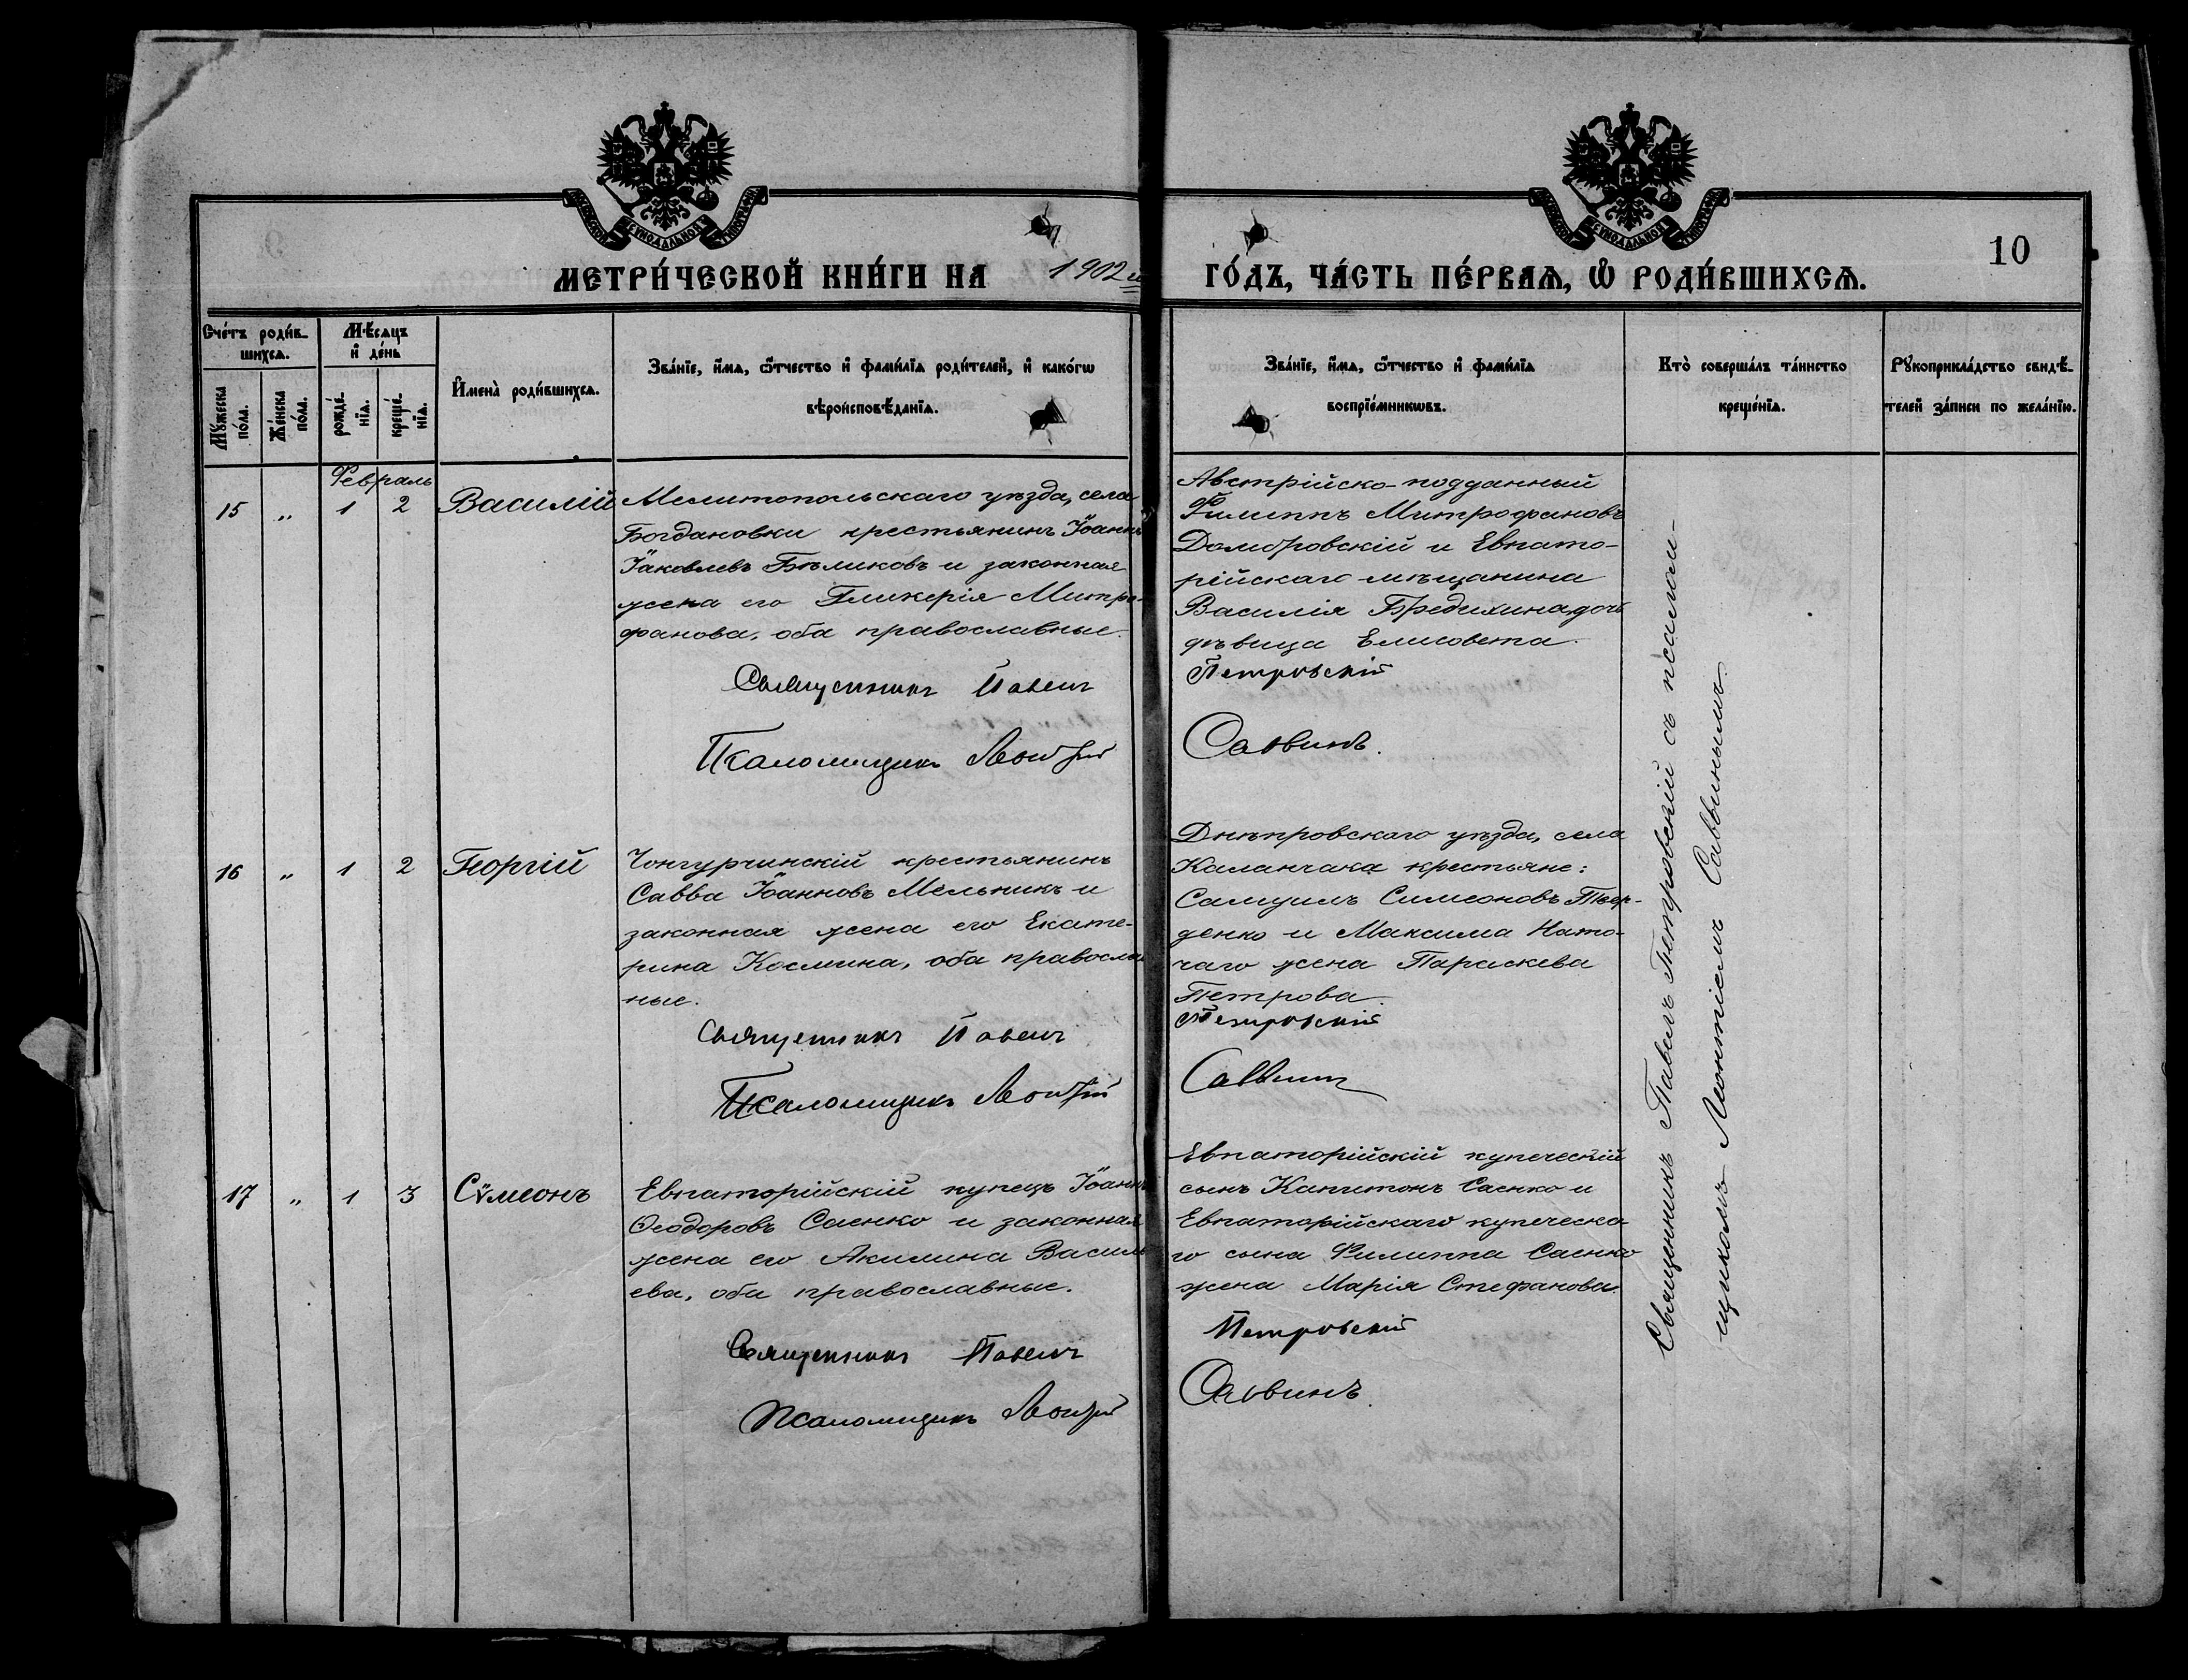 МЕТРИ́ЧЕСКОЙ КНИ́ГИ НА 1902 й
ГО́ДЪ, ЧА́СТЬ ПЕ́РВАѦ, Ѡ҆ РОДИ́ВШИХСѦ.
10
Сче́тъ роди́в-
шихсѧ.
Мѣ́сѧцъ
и҆ де́нь
Мꙋ́жеска
по́ла.
Же́нска
по́ла.
рожде́-
нїѧ.
креще́-
нїѧ.
И҆мена̀ роди́вшихсѧ.
Зва́нїе, и҆́мѧ, ѻ҆́тчество и҆ фами́лїѧ роди́телей, и҆ како́гѡ
вѣроисповѣ́данїѧ.
Зва́нїе, и҆́мѧ, ѻ҆́тчество и҆ фами́лїѧ
воспрїе́мникѡвъ.
Кто̀ соверша́лъ та́инство
креще́нїѧ.
Рꙋкоприкла́дство свидѣ́-
телей за́писи по жела́нїю.
Февраль
15 " 1 2 Василій
Мелитопольскаго уѣзда, села
Богдановки крестьянинъ Іоаннъ
Іаковлевъ Бѣликовъ и законная
жена его Гликерія Митро-
фанова, оба православные.
Священникъ Павелъ
Псаломщикъ Леонтій
Австрійско-подданный
Филиппъ Митрофановъ
Домбровскій и Евпато-
рійскаго мѣщанина
Василія Бредихина дочь
дѣвица Елисавета.
Петровскій
Саввинъ.
16 " 1 2 Георгій
Чонгурчинскій крестьянинъ
Савва Іоанновъ Мельникъ и
законная жена его Екате-
рина Космина, оба православ
ные.
Священникъ Павелъ
Псаломщикъ Леонтій
Днѣпровскаго уѣзда, села
Каланчака крестьяне:
Самуилъ Симеоновъ Твер-
денко и Максима Нато-
чаго жена Параскева
Петрова.
Петровскій
Саввинъ
17 " 1 3 Сѵмеонъ
Евпаторійскій купецъ Іоаннъ
Ѳеодоровъ Саенко и законная
жена его Акилина Василь
ева, оба православные.
Священникъ Павелъ
Псаломщикъ Леонтій
Евпаторійскій купеческій
сынъ Капитонъ Саенко и
Евпаторійскаго купеческа
го сына Филиппа Саенко
жена Марія Стефанова.
Петровскій
Саввинъ.
Священникъ Павелъ Петровскій съ псалом-
щикомъ Леонтіемъ Саввинымъ.